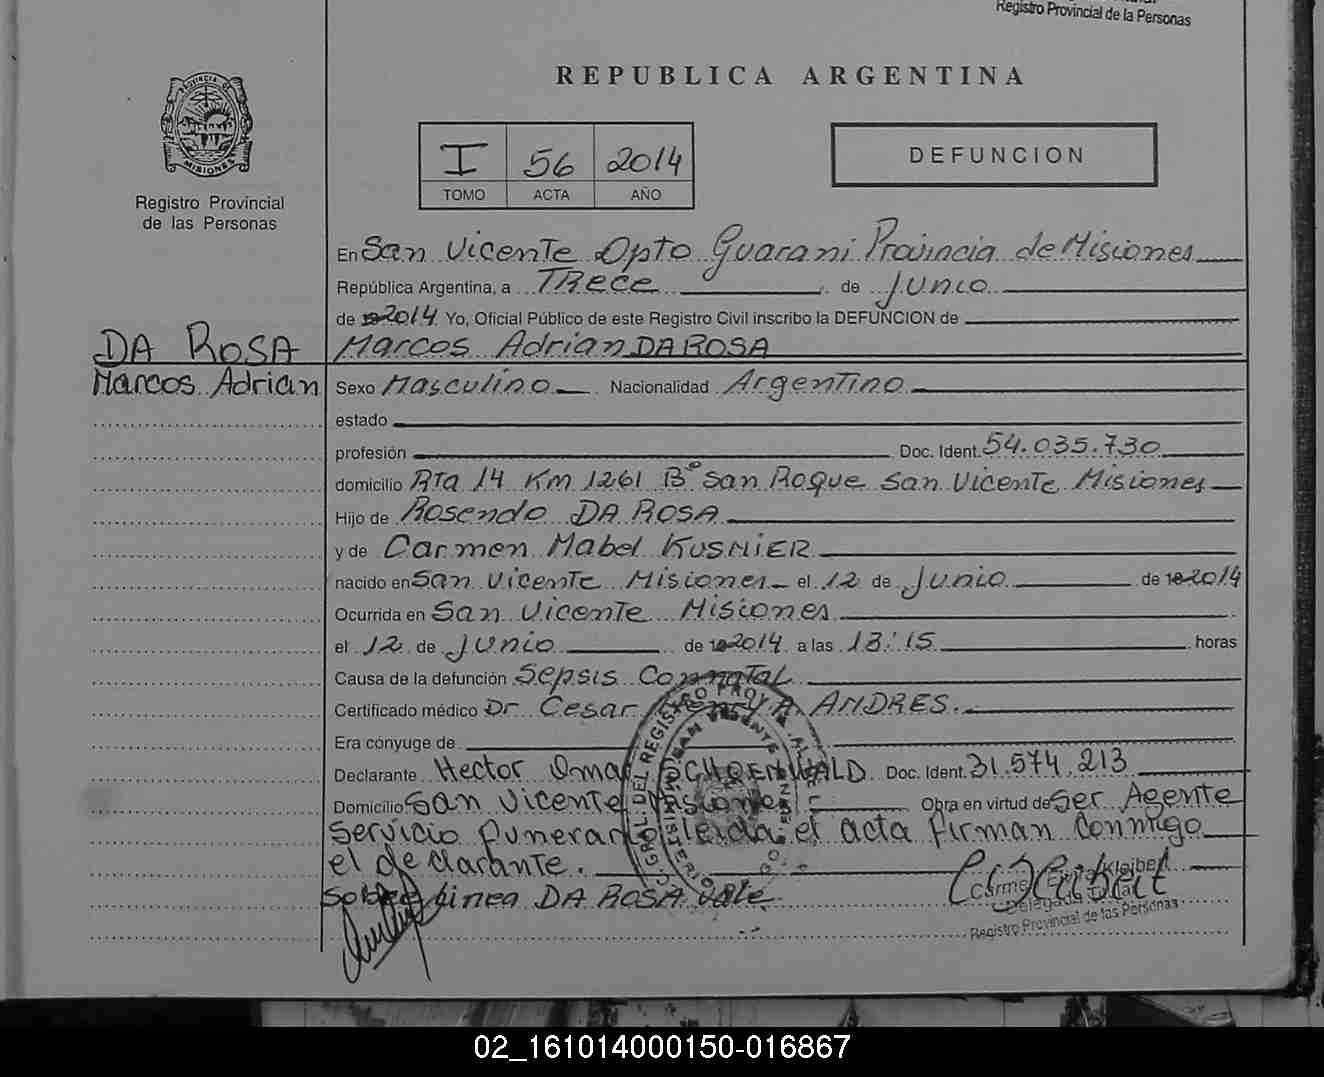 Registro Provincial de la Personas
REPUBLICA ARGENTINA
PROVINCIA DE
MISIONES
Registro Provincial
de las Personas
I 56 2014
TOMO ACTA AÑO
DEFUNCION
En San Vicente Dpto Guarani Provincia de Misiones
República Argentina, a Trece de Junio
de 2014 Yo, Oficial Público de este Registro Civil inscribo la DEFUNCION de
DA ROSA Marcos Adrian DA ROSA
Marcos Adrian Sexo Masculino Nacionalidad Argentino
estado
profesión Doc. Ident. 54.035.730
domicilio Rta 14 Km 1261 Bº San Roque San Vicente Misiones
Hijo de Rosendo DA ROSA
y de Carmen Mabel KUSNIER
nacido en San Vicente Misiones el 12 de Junio de 2014
Ocurrida en San Vicente Misiones
el 12 de Junio de 2014 a las 13:15 horas
Causa de la defunción Sepsis Connatal
Certificado médico Dr Cesar A. ANDRES.
Era cónyuge de
Declarante Hector Omar Doc. Ident. 31.574.213
Domicilio San Vicente Misiones Obra en virtud de Ser Agente
Servicio funerario leida el acta firman conmigo
el declarante.
Sobre Linea DA ROSA Vale
Kleibert
Delegada Titular
Registro Provincial de las Personas
02_161014000150-016867